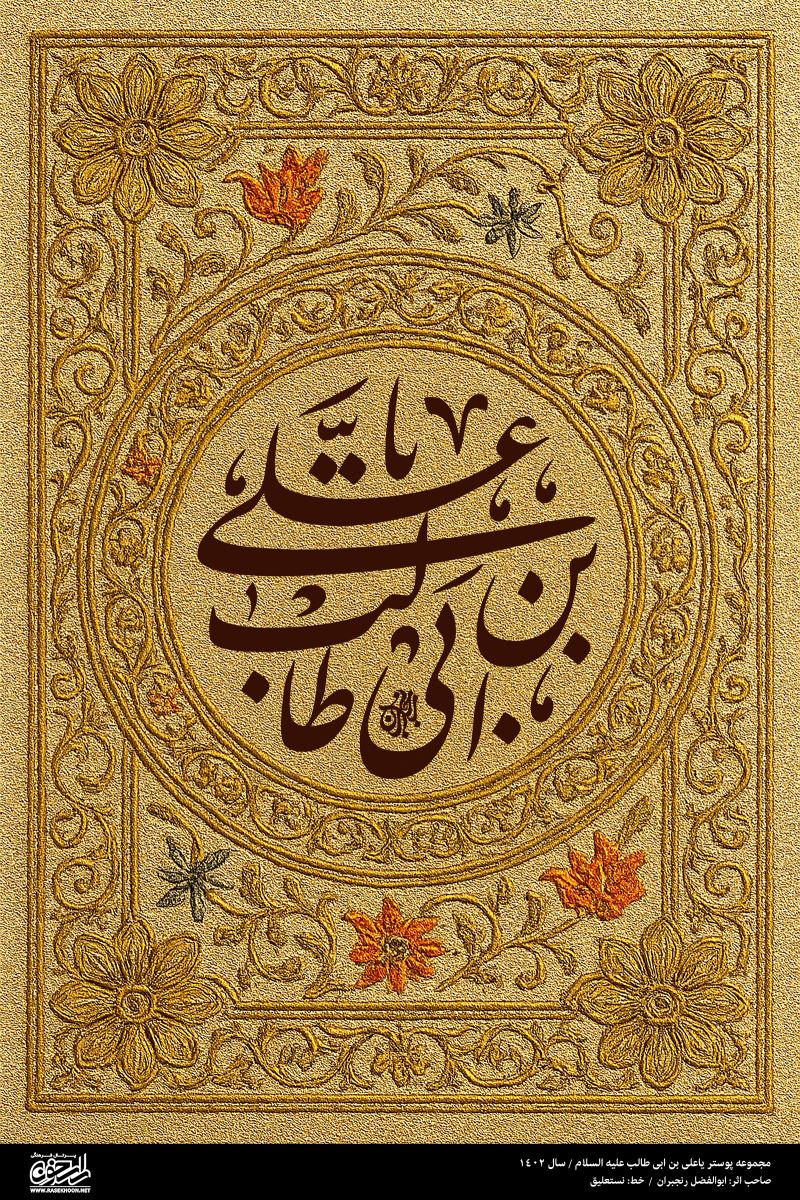 یا علی
بن ابی طالب
مجموعه پوستر یاعلی بن ابی طالب علیه السلام / سال ۱۴۰۲
صاحب اثر: ابوالفضل رنجبران / خط: نستعلیق
پورتال فرهنگی
راسخون
WWW.RASEKHOON.NET